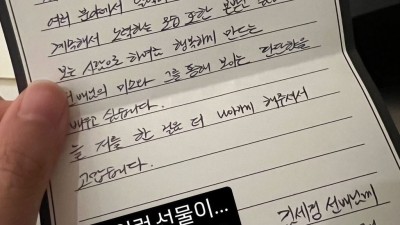 여러 분야에서
계속해서 노력하는 모습 또한 본받
보는 사람으로 하여금 행복하게 만드는
미모와 그를 통해 보이는 단단함을
배우고 싶습니다.
늘 저를 한 걸음 더 나아가게 해주셔서
고맙습니다.
선물이...
김세정 선배님께